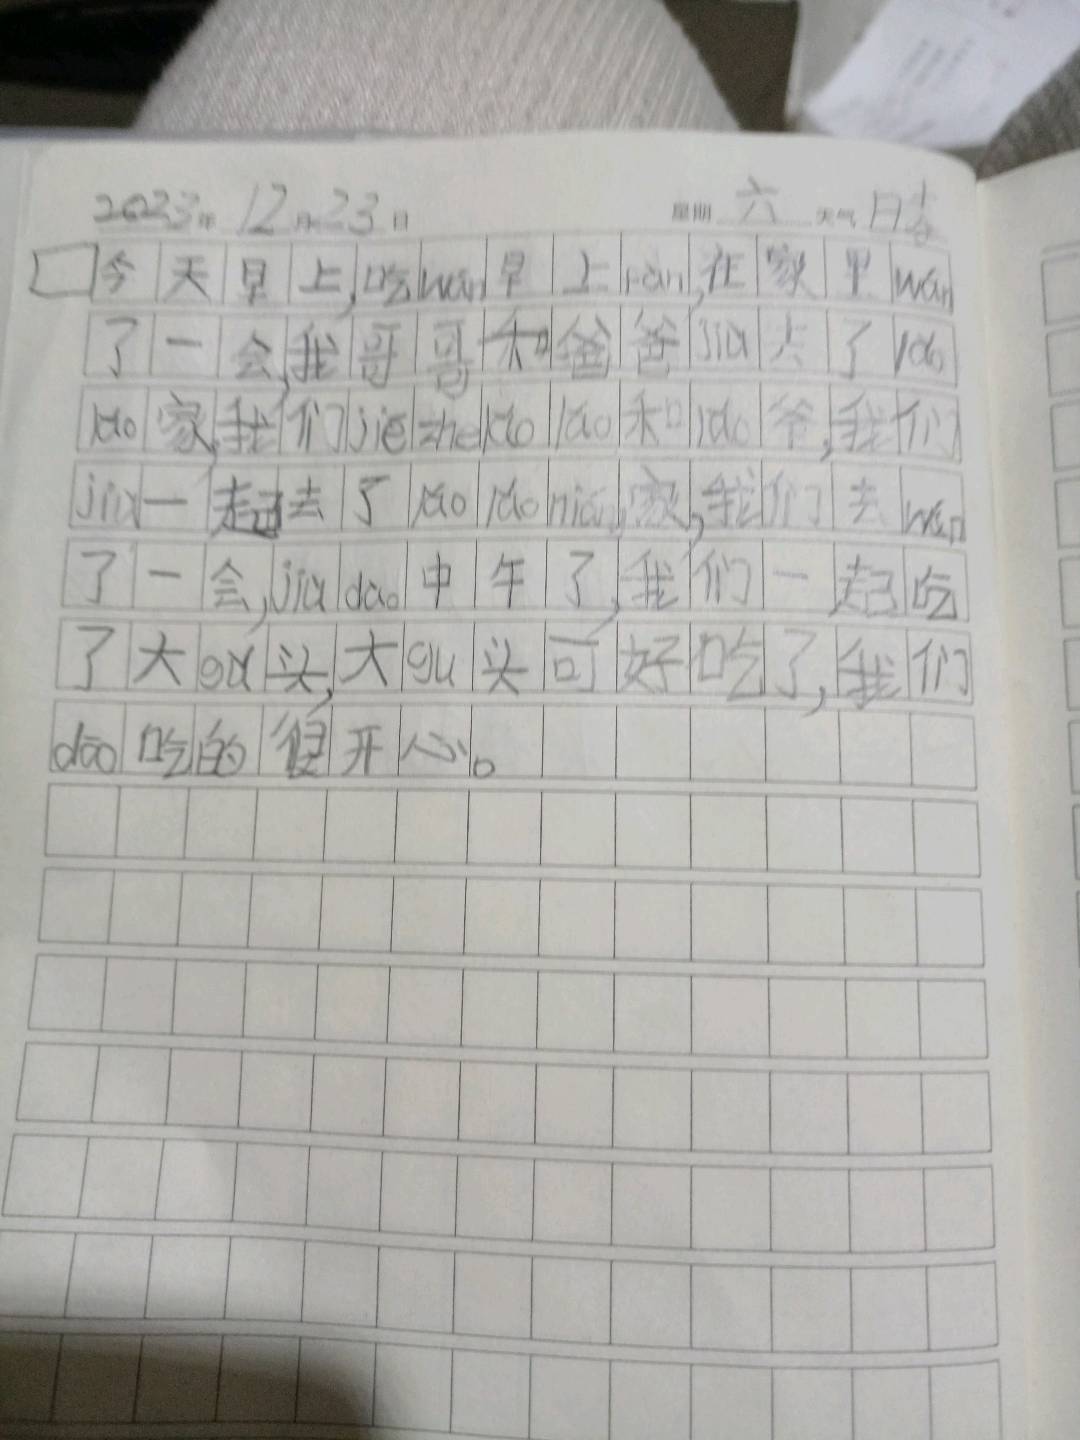 2023年 12月 23日 星期 六 天气 晴
今天早上,吃wán早上fàn,在家里wán
了一会,我哥哥和爸爸jiù去了lǎo
lao家,我们jiē zhe lǎo lao和lǎo爷,我们
jiù一起去了lǎo lǎo niáng家,我们去wán
了一会,jiù dào中午了,我们一起吃
了大gǔ头,大gǔ头可好吃了,我们
dōu吃的很开心。